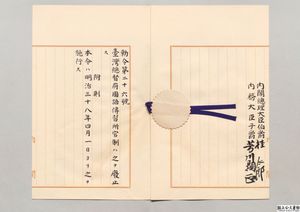 内閣總理大臣伯爵桂太郎
内務大臣子爵芳川顯正
勅令第二十六號
臺灣總督府國語傳習所官制ハ之ヲ廢止
ス
附則
本令ハ明治三十八年四月一日ヨリ之ヲ
施行ス